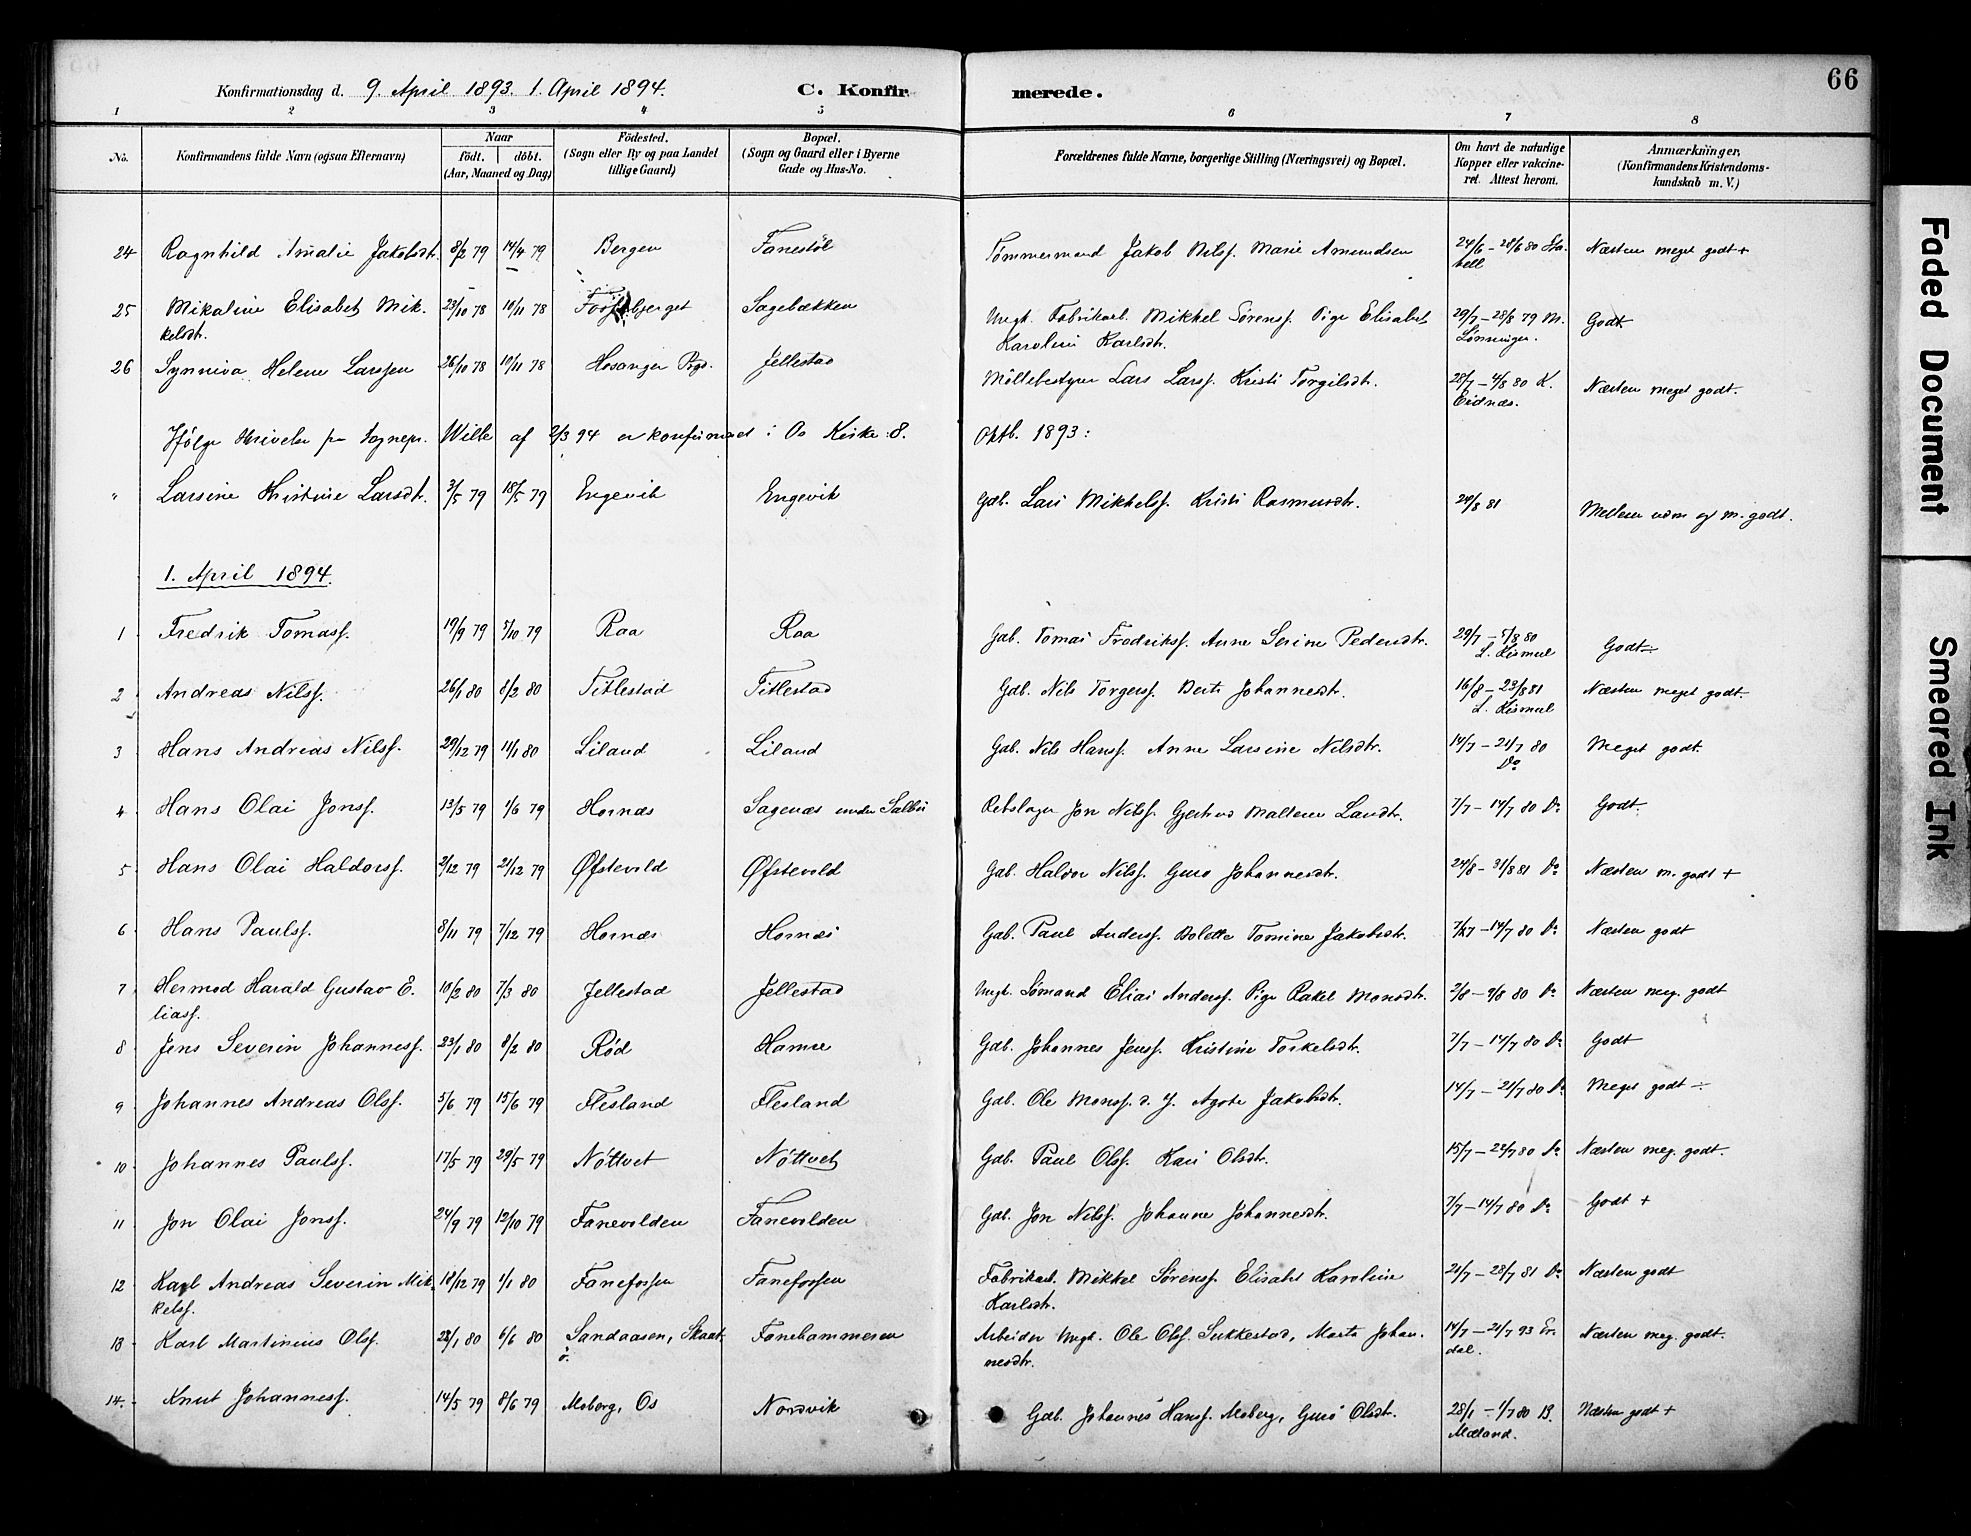 66
Konfirmationsdag d. 9. April 1893. 1. April 1894. C. Konfirmerede.
1 2 3 4 5 6 7 8
No. Konfirmandens fulde Navn (ogsaa Efternavn) Naar födt. döbt. (Aar, Maaned og Dag) Födested. (Sogn eller By og paa Landet tillige Gaard) Bopæl. (Sogn og Gaard eller i Byerne Gade og Hus-No. Forældrenes fulde Navne, borgerlige Stilling (Næringsvei) og Bopæl. Om havt de naturlige Kopper eller vakcineret. Attest herom. Anmærkninger, (Konfirmandens Kristendomskundskab m. V.)
24 Ragnhild Amalie Jakobsdt. 8/2 79 14/4 79 Bergen Fanestöl Tømmermand Jakob Nilsf. Marie Amundsen 24/6 - 28/6 80 Næsten meget godt +
25 Mikaline Elisabet Mikkelsdt. 23/10 78 10/11 78 Sagebækken Ungk. Fabrikarb. Mikkel Sørensf. Pige Elisabet Karoline Karlsdtr. 20/7 - 28/8 79 M. Lönninger. Godt
26 Synniva Helene Larssen 26/10 78 10/11 78 Hosanger Prgd. Jellestad Möllebestyrer Lars Larsf. Kristi Torgilsdtr. 28/7 - 4/8 80 K. Eidnæs. Næsten meget godt.
Ifölge Skrivelse fra Sognepr. Wille af 2/3 94 er konfirmeret i Os Kirke 8. Oktb. 1893:
" Larsine Kristine Larsdtr. 3/5 79 18/5 79 Engevik Engevik Gdb. Lars Mikkelsf. Kristi Rasmusdtr. 29/8 81 Mellem udm. og m. godt.
1. April 1894.
1 Fredrik Tomasf. 19/9 79 5/10 79 Raa Raa Gdb. Tomas Fredriksf. Anne Serine Pedersdtr. 29/7 - 5/8 80 L. Kismul Godt ÷
2 Andreas Nilsf. 26/1 80 8/2 80 Titlestad Titlestad Gdb. Nils Torgersf. Berte Johannesdtr. 16/8 - 23/8 81 L. Kismul Næsten meget godt.
3 Hans Andreas Nilsf. 29/12 79 11/1 80 Liland Liland Gdb. Nils Hansf. Anne Larsine Nilsdtr. 14/7 - 21/7 80 Do Meget godt.
4 Hans Olai Jonsf. 13/5 79 1/6 79 Hornæs Sagenæs under Salbu Rebslager Jon Nilsf. Gjertrud Larsdtr. 7/7 - 14/7 80 Do Godt
5 Hans Olai Haldorsf. 2/12 79 21/12 79 Øfstevold Øfstevold Gdb. Haldor Nilsf. Guro Johannesdtr. 24/8 - 31/8 81 Do Næsten m. godt +
6 Hans Paulsf. 8/11 79 7/12 79 Hornæs Hornæs Gdb. Paul Andersf. Bolette Tomine Jakobsdtr. 7/7 - 14/7 80 Do Næsten godt
7 Hermod Harald Gustav Eliasf. 10/2 80 7/3 80 Jellestad Jellestad Ungk. Sømand Elias Andersf. Pige Rakel Monsdtr. 2/8 - 9/8 80 Do Næsten meg. godt
8 Jens Severin Johannesf. 23/1 80 8/2 80 Röd Hamre Gdb. Johannes Jensf. Kristine Torkelsdtr. 7/7 - 14/7 80 Do Godt
9 Johannes Andreas Olsf. 5/6 79 15/6 79 Flesland Flesland Gdb. Ole Monsf. d. y. Agote Jakobsdtr. 14/7 - 21/7 80 Do Meget godt ÷
10 Johannes Paulsf. 17/5 79 29/5 79 Nöttvet Nöttvet Gdb. Paul Olsf. Kari Olsdtr. 15/7 - 22/7 80 Do Næsten meg. godt.
11 Jon Olai Jonsf. 24/9 79 12/10 79 Fanevolden Fanevolden Gdb. Jon Nilsf. Johanne Johannesdtr. 7/7 - 14/7 80 Do Godt +
12 Karl Andreas Severin Mikkelsf. 18/12 79 1/1 80 Fanefossen Fanefossen Fabrikarb. Mikkel Sørensf. Elisabet Karoline Karlsdtr. 21/7 - 28/7 81 Do Næsten godt
13 Karl Martinius Olsf. 22/1 80 6/6 80 Sandaasen, Skaatö. Fanehammeren Arbeider Ungk. Ole Olsf. Sukkestad, Marte Johannesdtr. 14/7 - 21/7 93 Erdal. Næsten meg. godt.
14. Knut Johannesf. 14/5 79 8/6 79 Moberg, Os Nordvik Gdb. Johannes Hansf. Moberg, Guro Olsdtr. 28/1 - 1/7 80 B. Mæland. Næsten godt +
Faded Document
Smeared Ink